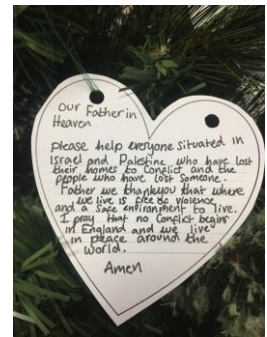 Our Father in
Heaven
please help everyone situated in
Israel and Palestine, who have lost
their homes to Conflict and the
people who have lost Someone.
Father we thankyou that where
we live is free be violence
and a Safe environment to live.
I pray that no Conflict begins
in England and we live
in peace around the
world.
Amen